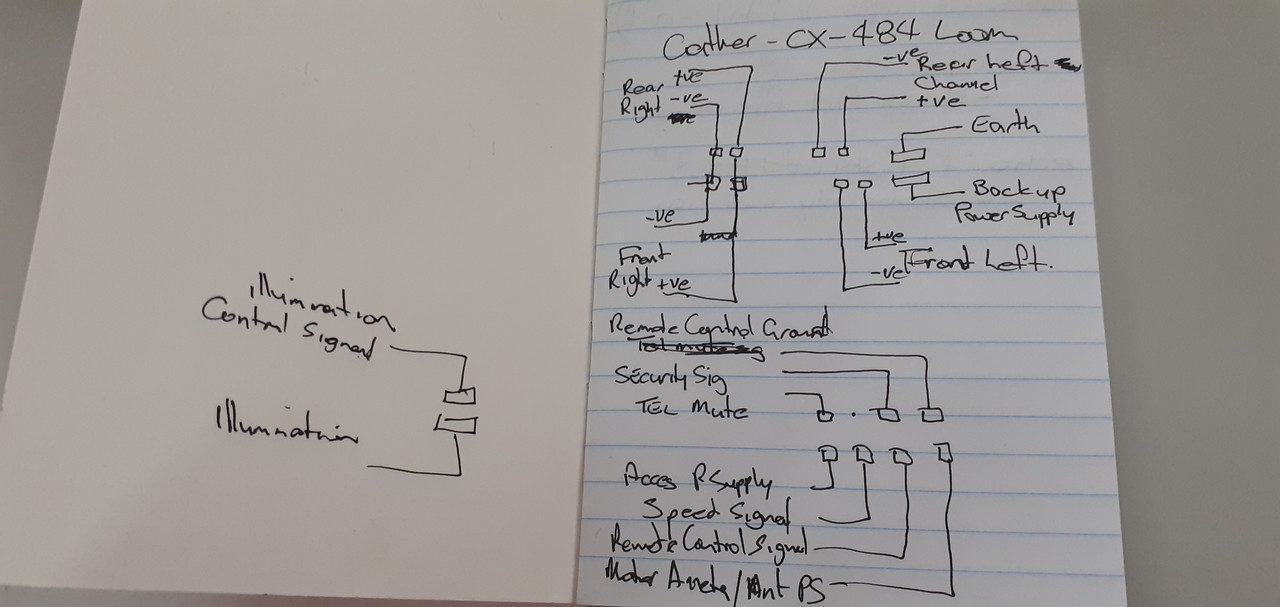 Illumination
Control Signal
Illumination
CX-484 Loom
Rear +ve
Right -ve
-ve Rear Left
Channel
+ve
Earth
Backup
Power Supply
-ve
Front
Right +ve
+ve
-ve Front Left.
Remote Control Ground
Security Sig
TEL Mute
Acces P Supply
Speed Signal
Remote Control Signal
Motor / Ant PS